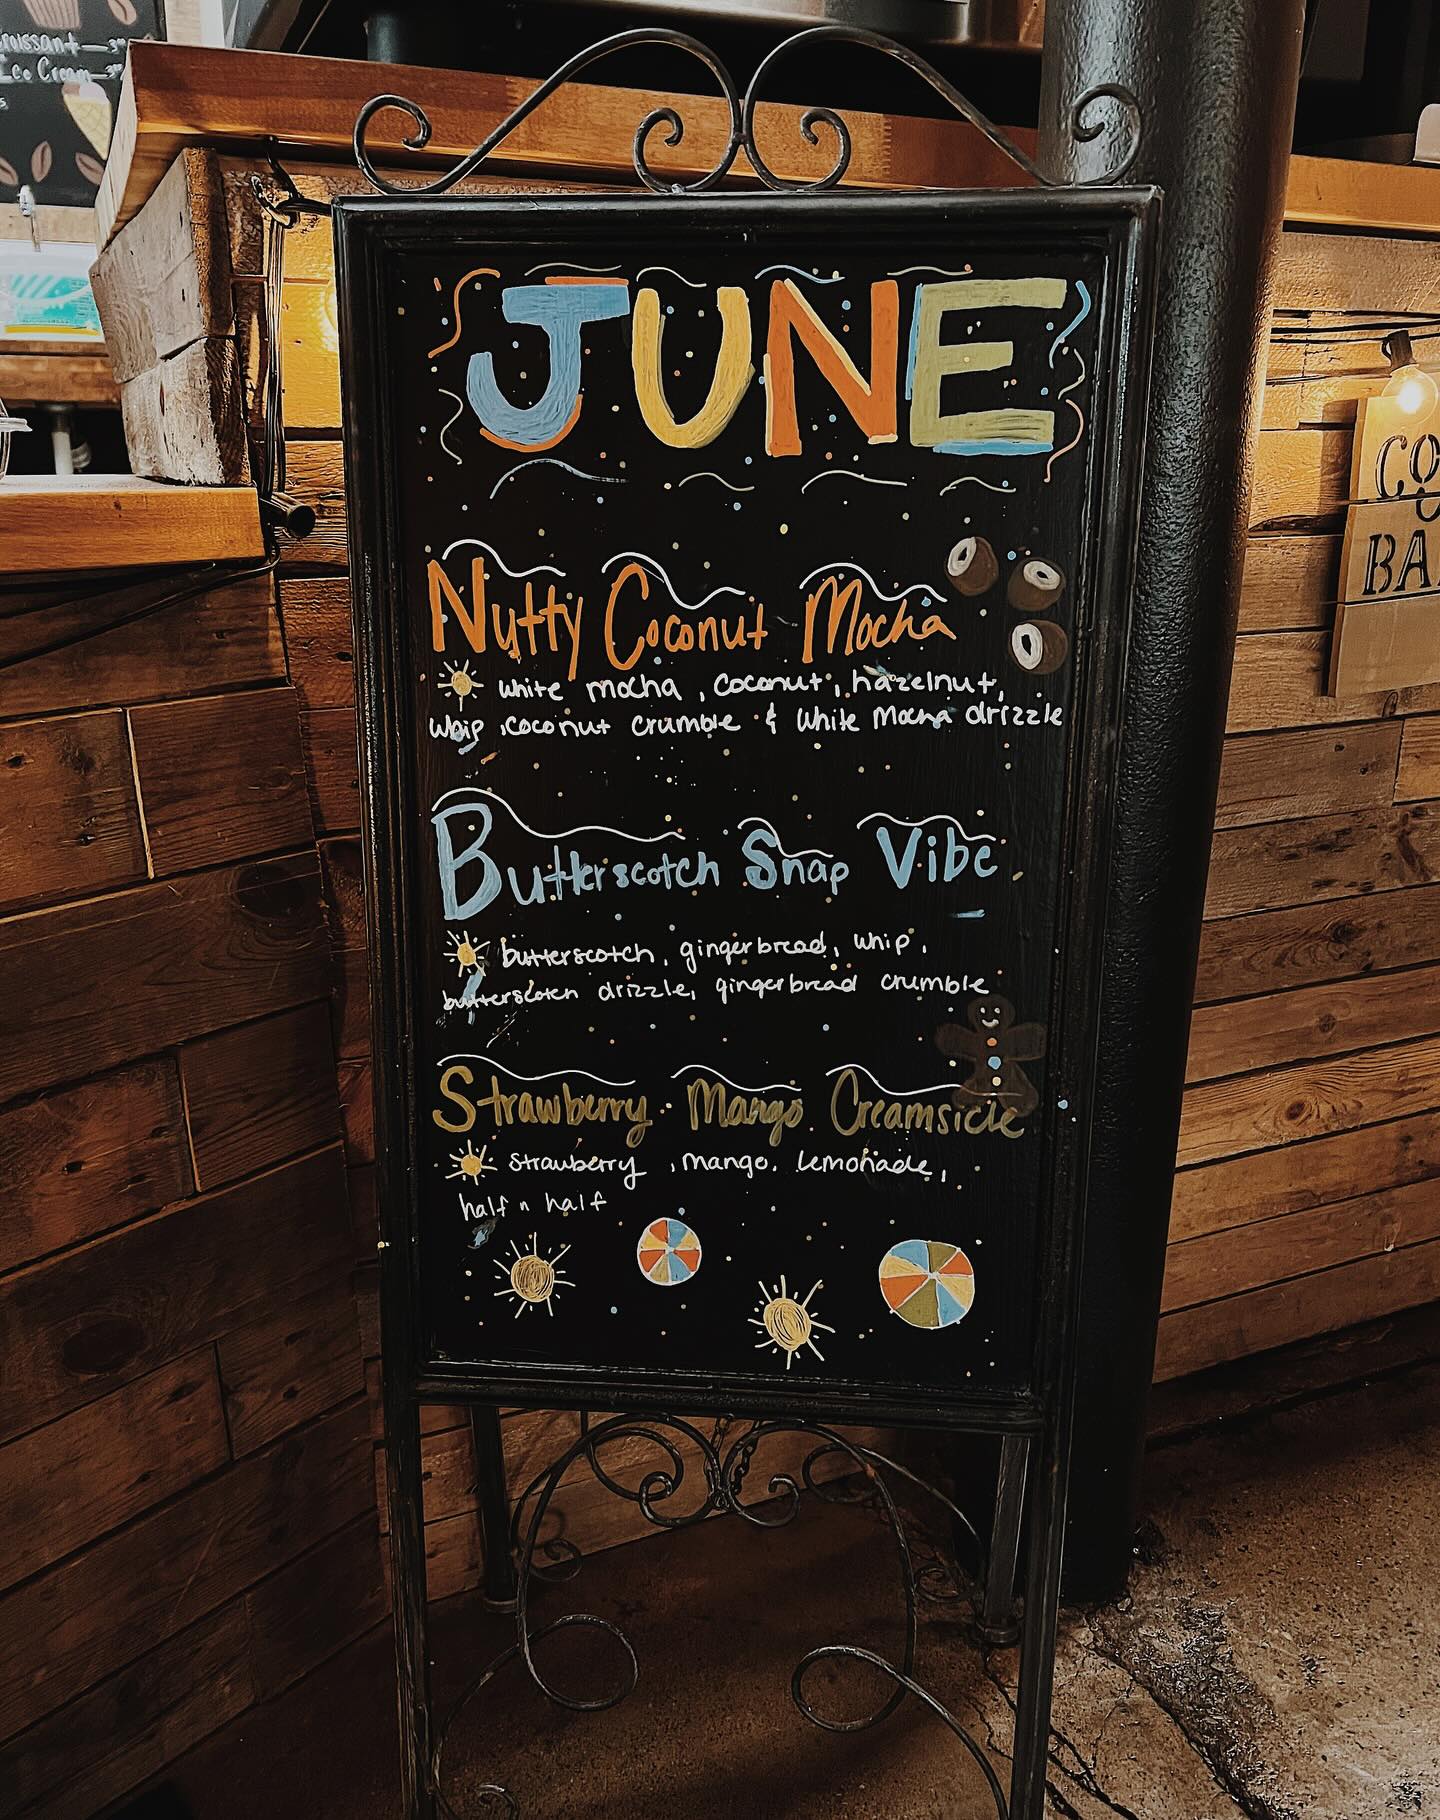 Croissant — 3
Ice Cream — 3
JUNE
Nutty Coconut Mocha
white mocha, coconut, hazelnut,
whip, coconut crumble & white mocha drizzle
Butterscotch Snap Vibe
butterscotch, gingerbread, whip,
butterscotch drizzle, gingerbread crumble
Strawberry Mango Creamsicle
strawberry, mango, lemonade,
half n half